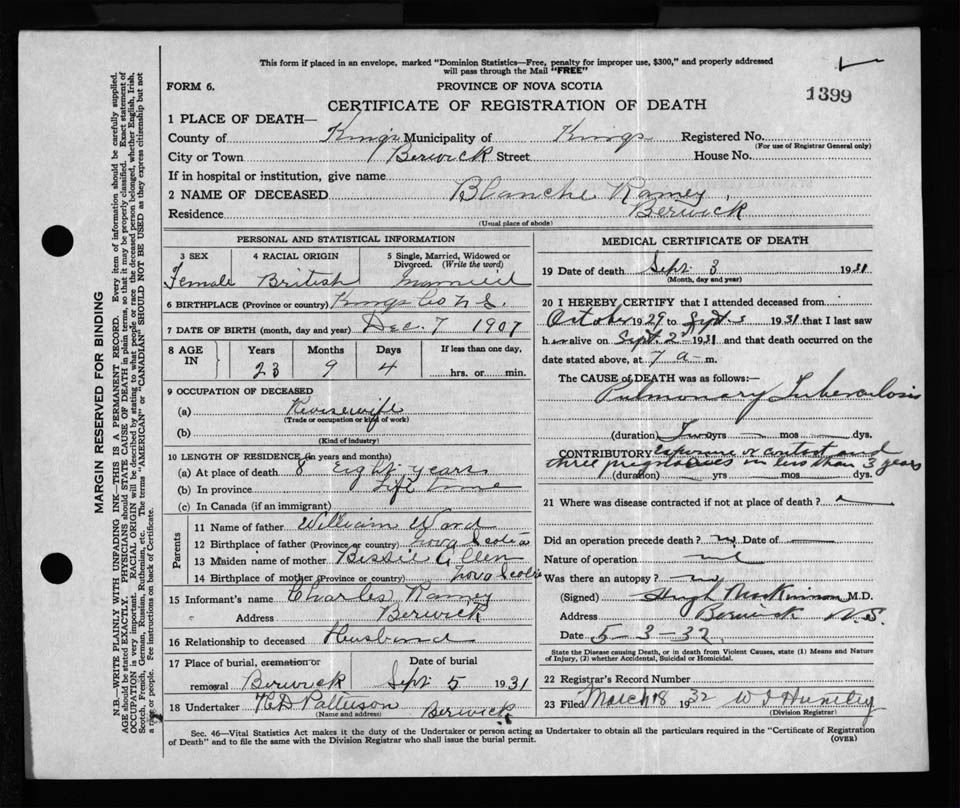 This form if placed in an envelope, marked "Dominion Statistics—Free, penalty for improper use, $300," and properly addressed
will pass through the Mail "FREE"
FORM 6.
PROVINCE OF NOVA SCOTIA
1399
CERTIFICATE OF REGISTRATION OF DEATH
1 PLACE OF DEATH—
County of Kings Municipality of Kings Registered No.
(For use of Registrar General only)
City or Town Berwick Street House No.
If in hospital or institution, give name
2 NAME OF DECEASED Blanche Ramey
Residence Berwick
(Usual place of abode)
PERSONAL AND STATISTICAL INFORMATION
3 SEX 4 RACIAL ORIGIN 5 Single, Married, Widowed or
Divorced. (Write the word)
Female British Married
6 BIRTHPLACE (Province or country) Kings Co N S.
7 DATE OF BIRTH (month, day and year) Dec. 7 1907
8 AGE IN Years Months Days If less than one day,
23 9 4 hrs. or min.
9 OCCUPATION OF DECEASED
(a) Housewife
(Trade or occupation or kind of work)
(b)
(Kind of industry)
10 LENGTH OF RESIDENCE (in years and months)
(a) At place of death 8 Eight years
(b) In province Life time
(c) In Canada (if an immigrant)
Parents
11 Name of father William Ward
12 Birthplace of father (Province or country) Nova Scotia
13 Maiden name of mother Bessie Allen
14 Birthplace of mother (Province or country) Nova Scotia
15 Informant's name Charles Ramey
Address Berwick
16 Relationship to deceased Husband
17 Place of burial, cremation or Date of burial
removal Berwick Sept 5 1931
18 Undertaker Patterson Berwick
(Name and address)
MEDICAL CERTIFICATE OF DEATH
19 Date of death Sept 3 1931
(Month, day and year)
20 I HEREBY CERTIFY that I attended deceased from
October 1929 to Sept 3 1931 that I last saw
her alive on Sept. 2 1931 and that death occurred on the
date stated above, at 7 a m.
The CAUSE of DEATH was as follows:—
Pulmonary Tuberculosis
(duration) Two yrs mos dys.
CONTRIBUTORY and
three pregnancies in less than 3 years
(duration) yrs mos dys.
21 Where was disease contracted if not at place of death?
Did an operation precede death? no Date of
Nature of operation
Was there an autopsy? no
(Signed) Hugh MacKinnon M.D.
Address Berwick N.S.
Date 5-3-32
State the Disease causing Death, or in death from Violent Causes, state (1) Means and Nature
of Injury, (2) whether Accidental, Suicidal or Homicidal.
22 Registrar's Record Number
23 Filed March 8 1932
(Division Registrar)
Sec. 46—Vital Statistics Act makes it the duty of the Undertaker or person acting as Undertaker to obtain all the particulars required in the "Certificate of Registration
of Death" and to file the same with the Division Registrar who shall issue the burial permit.
(OVER)
MARGIN RESERVED FOR BINDING
N.B.—WRITE PLAINLY WITH UNFADING INK—THIS IS A PERMANENT RECORD. Every item of information should be carefully supplied.
AGE should be stated EXACTLY. PHYSICIANS should STATE CAUSE OF DEATH in plain terms, so that it may be properly classified. Exact statement of
OCCUPATION is very important. RACIAL ORIGIN will be described by stating to what people or race the deceased person belonged, whether English, Irish,
Scotch, French, German, Russian, Ruthenian, etc. The terms "AMERICAN" or "CANADIAN" SHOULD NOT BE USED as they express citizenship but not
a race or people. Fee instructions on back of Certificate.